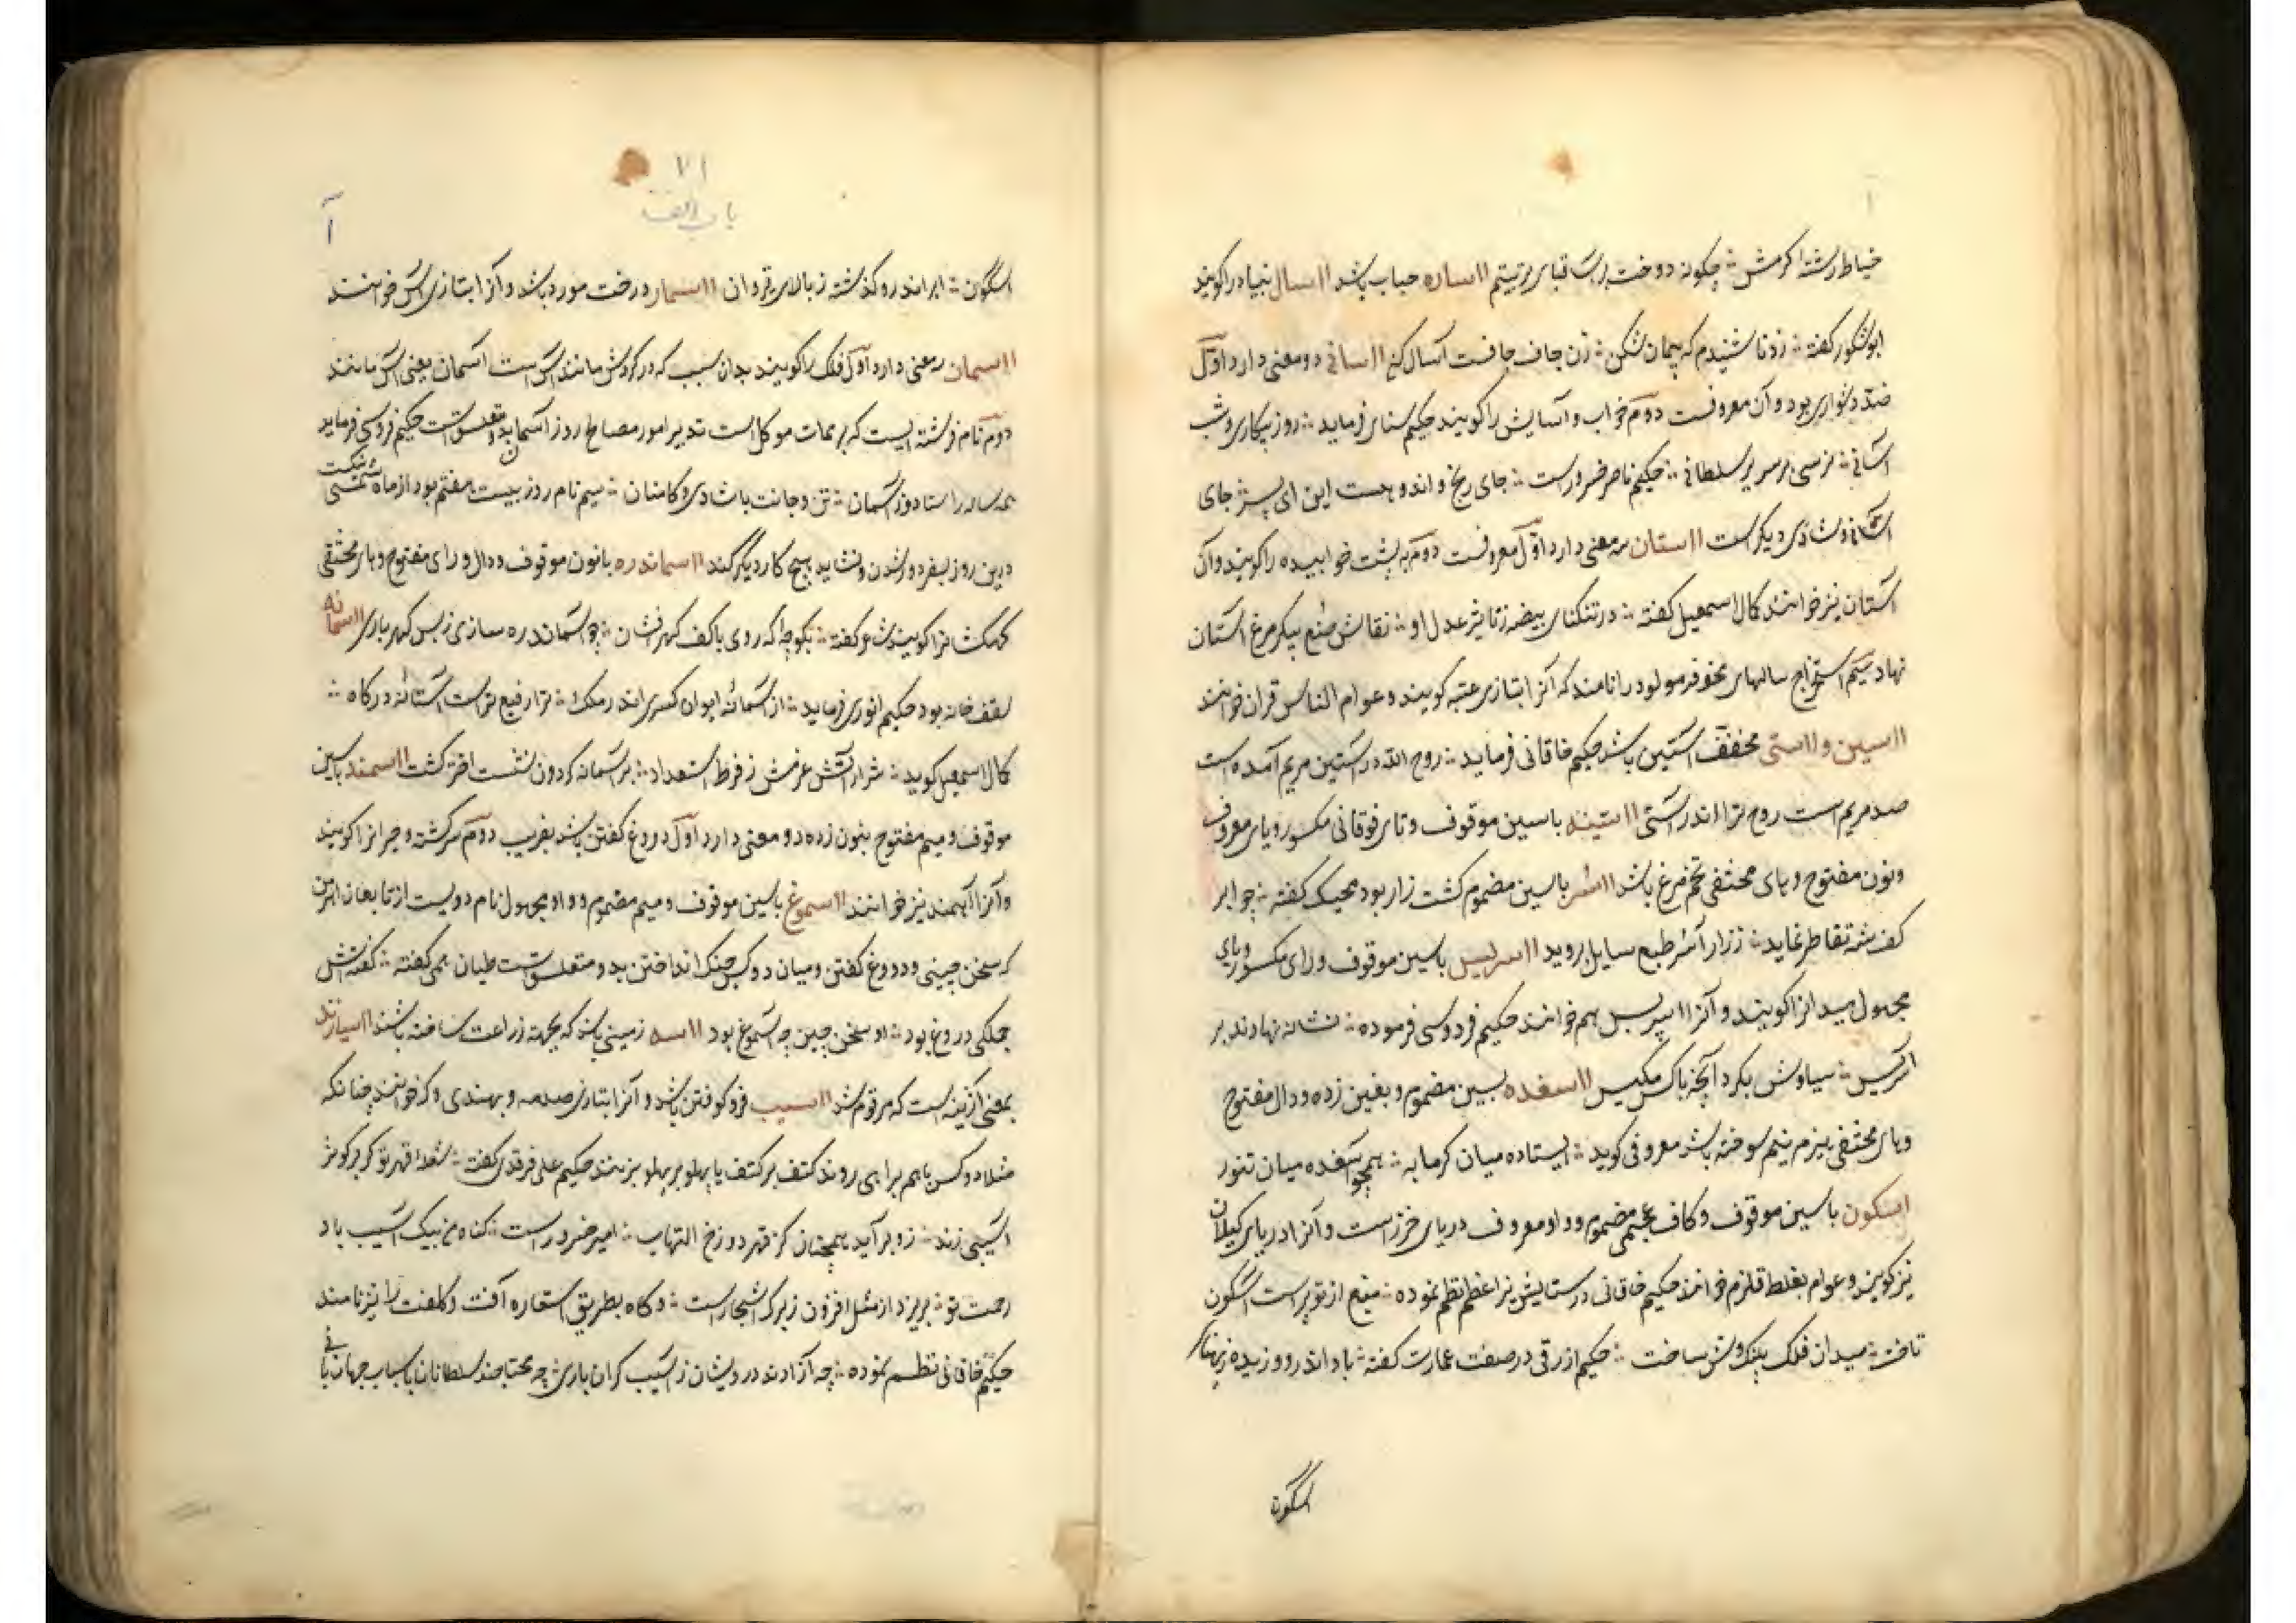 خیاط رشته کرمش ∴ چکونه دوخت بر قبای بریشم ااساره حباب باشد ااسال بنیاد را کویند
ابوشکور کفته ∴ ز دانا شنیدم که پیمان شکن ∴ زن جاف جافست آسال کن ااسانی دو معنی دارد اوّل
ضدّ دشواری بود و آن معروفست دوّم خواب و آسایش را کویند حکیم سنای فرماید ∴ روز بیکاری و شب
آسانی ∴ نرسی بر سریر سلطانی ∴ حکیم ناصر خسرو راست ∴ جای رنج و اندوهست این ای پسر جای
آسانی و شادی دیکر است ااستان سه معنی دارد اوّل معروفست دوّم به پشت خوابیده را کویند و آن
آستان نیز خوانند کمال اسمعیل کفته ∴ در تنکنای بیضه ز تاثیر عدل او ∴ نقاش صنع پیکر مرغ آستان
نهاد سیم استخراج سالهای مولود را نامند که آنرا بتازی کویند و عوام الناس قران خوانند
ااستین و ااستی مخفف آستین باشد حکیم خاقانی فرماید ∴ روح الله در آستین مریم آمده است
صد مریم است روح ترا اندر آستی ااستینه با سین موقوف و تای فوقانی مکسور و یای معروف
و نون مفتوح و های مختفی تخم مرغ باشد ااسر با سین مضموم کشت زار بود محیک کفته ∴ چو ابر
کف شه تقاطر نماید ∴ ز زار آسر طبع سایل بروید ااسریس با سین موقوف و رای مکسور و یای
مجهول میدانرا کویند و آنرا اسپریس هم خوانند حکیم فردوسی فرموده ∴ نشانه نهادند بر
اسریس ∴ سیاوش نکرد ایچ با کس مکیس ااسغده بسین مضموم و بغین زده و دال مفتوح
و های مختفی هیزم نیم سوخته باشد معروفی کوید ∴ ایستاده میان کرمابه ∴ همچو آسغده میان تنور
اسکون با سین موقوف و کاف عجمی مضموم و واو معروف دریای خزر است و آنرا دریای کیلان
نیز کویند و عوام بغلط قلزم خوانند حکیم خاقانی در ستایش نظم نموده ∴ تیغ از تو پر است اسکون
تافت ∴ میدان فلک پلنک وش ساخت ∴ حکیم ازرقی در صفت عمارت کفته ∴ باد اندرو وزیده ز پهنای
اسکون
۲۱
باب الف
آ
اسکون ∴ ابر اندرو کذشته ز بالای قیروان ااسمار درخت مورد باشد و آنرا بتازی آس خوانند
ااسمان سه معنی دارد اوّل فلک را کویند بدان سبب که در کردش مانند آس است آسمان یعنی آس مانند
دوّم نام فرشته ایست که بر ممات موکل است تدبیر امور و مصالح روز آسمان بدو متعلق است حکیم فردوسی فرماید
همه ساله راستا دوز آسمان ∴ تن و جانت با شادی و کامران ∴ سیم نام روز بیست هفتم بود از ماه شمسی نیکست
درین روز بسفر دور شدن و نشاید هیچ کار دیکر کند ااسماندره با نون موقوف و دال و رای مفتوح و های مختفی
کهکشانرا کویند شاعر کفته ∴ بکوچه که روی با کف کهرفشان ∴ چو آسماندره سازی ز بس کهرباری ااسمانه
سقف خانه بود حکیم انوری فرماید ∴ از آسمانهٔ ایوان کسری اندر ملک ∴ ترا رفیع تر است آستانهٔ درکاه ∴
کمال اسمعیل کوید ∴ شرار آتش عزمش ز فرط استعداد ∴ بر آسمانه کردون نشست اختر کشت ااسمند با سین
موقوف و میم مفتوح بنون زده دو معنی دارد اوّل دروغ کفتن باشد بفریب دوّم سرکشته و حیرانرا کویند
و آنرا آهمند نیز خوانند ااسموغ با سین موقوف و میم مضموم و واو مجهول نام دیویست از تابعان اهرمن
که سخن چینی و دروغ کفتن و میان دو کس جنک انداختن بدو متعلق است طیان بمی کفته ∴ کفتهاش
جملکی دروغ بود ∴ او سخن چین چو آسموغ بود ااسه زمینی باشد که بجهة زراعت ساخته باشند ااسیارند
بمعنی آزینه است که مرقوم شد ااسیب فرو کوفتن باشد و آنرا بتازی صدمه و بهندی دکه خوانند چنانکه
مثلا دو کس باهم براهی روند کتف بر کتف یا پهلو بر پهلو بزنند حکیم علی فرقدی کفته ∴ شعلهٔ قهر تو کر بر کوثر
آسیبی زند ∴ زو برآید همچنان کز قهر دوزخ التهاب ∴ امیر خسرو راست ∴ کناه من بیک آسیب باد
رحمت تو ∴ بریزد از مثل افزون ز برک اشجار است ∴ و کاه بطریق استعاره آفت و کلفت را نیز نامند
حکیم خاقانی نظم نموده ∴ چه آزادند درویشان ز آسیب کران باری ∴ چه محتاجند سلطانان باسباب جهانبانی